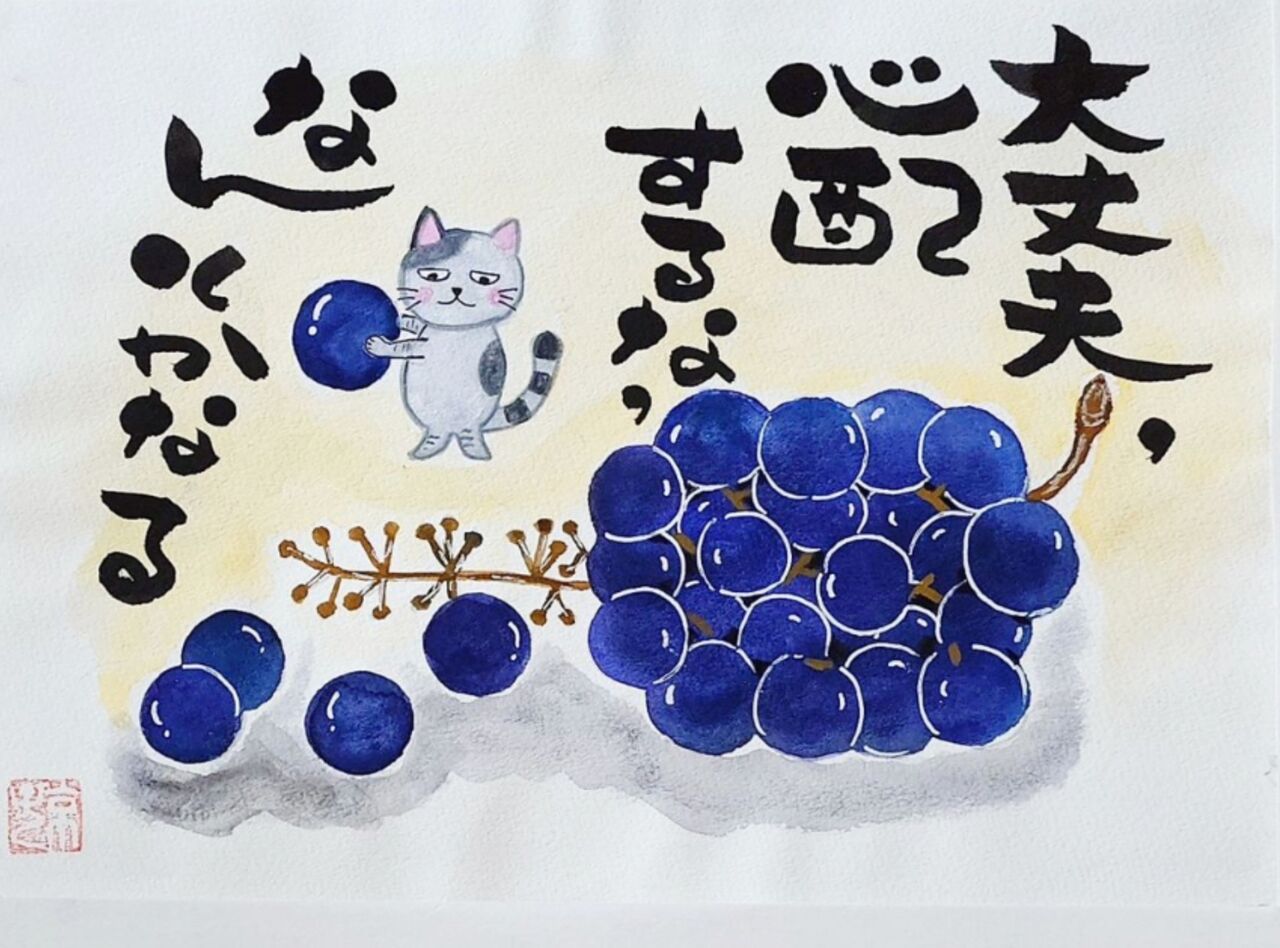 大丈夫、
心配
するな、
なん
とかなる